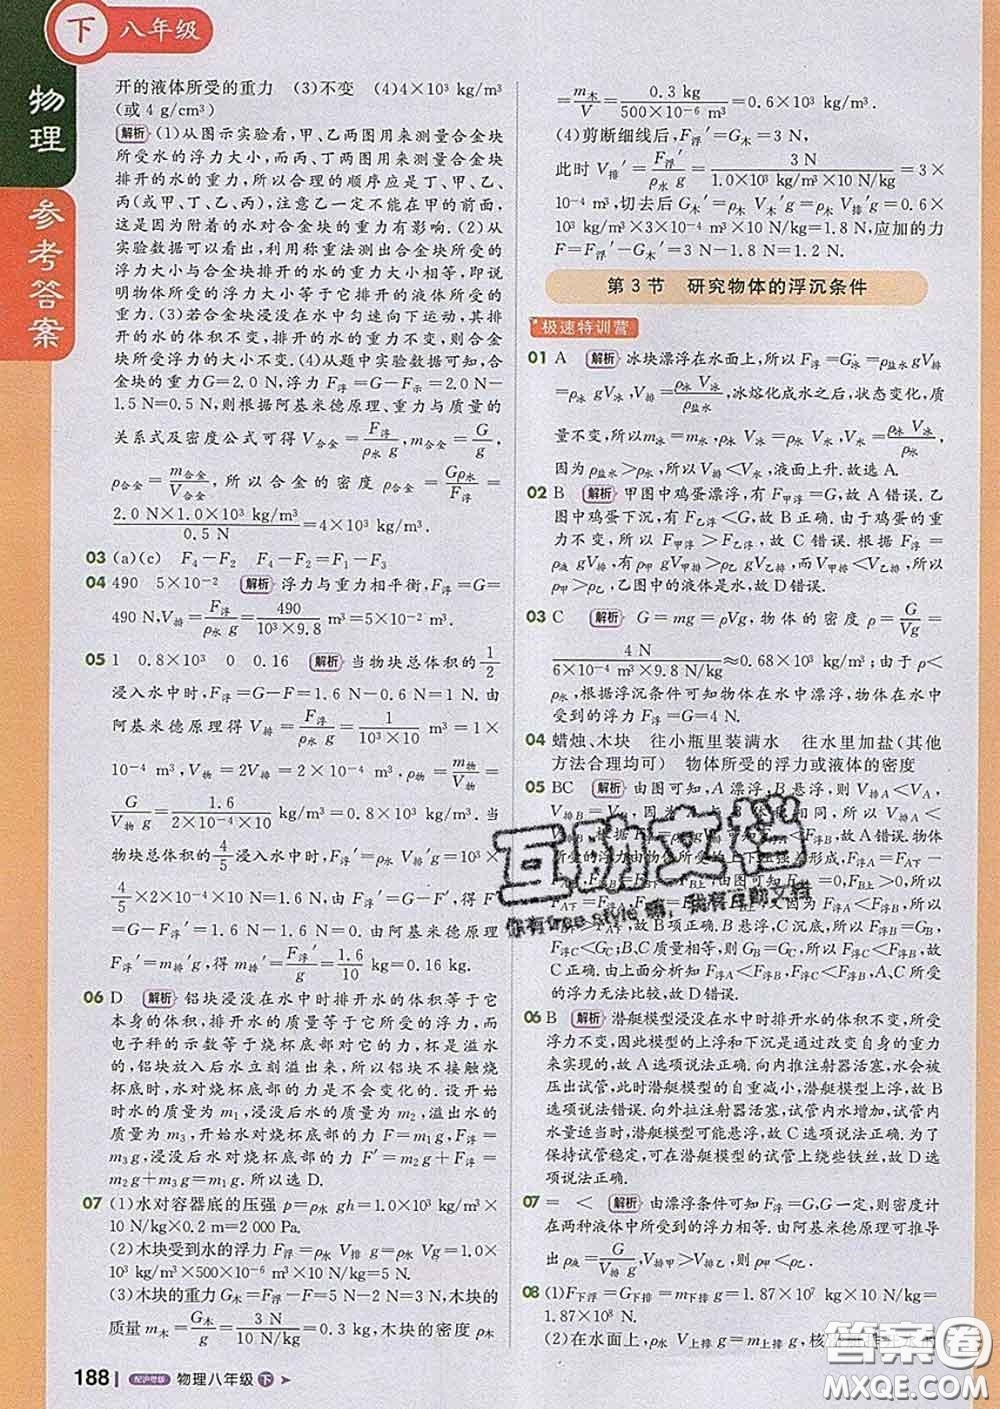 下 八年级
物理
参考答案
开的液体所受的重力 (3)不变 (4)4×10³ kg/m³
(或 4 g/cm³)
解析 (1)从图示实验看,甲、乙两图用来测量合金块
所受水的浮力大小,而丙、丁两图用来测量合金块
排开的水的重力,所以合理的顺序应是丁、甲、乙、
丙(或甲、丁、乙、丙),注意乙一定不能在甲的前面,
这是因为附着的水对合金块的重力有影响. (2)从
实验数据可以看出,利用称重法测出合金块所受的
浮力大小与合金块排开的水的重力大小相等,即说
明物体所受的浮力大小等于它排开的液体所受的重
力. (3)若合金块浸没在水中匀速向下运动,其排
开的水的体积不变,则根据阿基米德原理可知合金
块所受浮力的大小不变. (4)从题中实验数据可知,合
金块的重力G=2.0 N,浮力 F浮=G-F示=2.0 N-
1.5 N=0.5 N,则根据阿基米德原理、重力与质量的
关系式及密度公式可得 V合金=F浮/(ρ水 g),m合金=G/g,
ρ合金=m合金/V合金,所以合金的密度 ρ合金=Gρ水/F浮=
(2.0 N×1.0×10³ kg/m³)/(0.5 N)=4×10³ kg/m³.
03 (a)(c) F₄-F₂ F₄-F₂=F₁-F₃
04 490 5×10⁻² 解析 浮力与重力相平衡,F浮=G=
490 N,V排=F浮/(ρ水 g)=490/(10³×9.8) m³=5×10⁻² m³.
05 1 0.8×10³ 0 0.16 解析 当物块总体积的1/2
浸入水中时,F浮=G-F=1.6 N-0.6 N=1 N. 由
阿基米德原理得 V排=F浮/(ρ水 g)=1/(10³×10) m³=1×
10⁻⁴ m³,V物=2V排=2×10⁻⁴ m³,ρ物=m物/V物=
G/(V物 g)=1.6/(2×10⁻⁴×10) kg/m³=0.8×10³ kg/m³. 当
物块总体积的4/5浸入水中时,F浮′=ρ水 V排′g=10³×
4/5×2×10⁻⁴×10 N=1.6 N,由 F浮′=G-F′,得 F′=
G-F浮′=1.6 N-1.6 N=0. 由阿基米德原理
F浮′=m排′g得m排′=F浮′/g=1.6/10 kg=0.16 kg.
06 D 解析 铝块浸没在水中时排开水的体积等于它
本身的体积,排开水的质量等于它所受的浮力,而
电子秤的示数等于烧杯底部对它的力,杯是溢水
的,铝块放入后水立刻溢出来,所以铝块不接触烧
杯底时,水对烧杯底部的力是不会变化的. 设开始
时水的质量为 m₁,浸没后水的质量为 m₂,溢出水的
质量为 m₃,开始水对烧杯底部的力 F=m₁g,F浮=
m₃g,浸没后水对烧杯底部的力 F′=m₂g+F浮=
m₂g+m₃g=m₁g. 所以选 D.
07 (1)水对容器底的压强 p=ρ水 gh=1.0×10³ kg/m³×
10 N/kg×0.2 m=2 000 Pa.
(2)木块受到水的浮力 F浮=ρ水 V排 g=ρ水 Vg=1.0×
10³ kg/m³×500×10⁻⁶ m³×10 N/kg=5 N.
(3)木块的重力 G木=F浮-F=5 N-2 N=3 N,木块的
质量 m木=G木/g=3 N/(10 N/kg)=0.3 kg,木块的密度 ρ木
=m木/V=0.3 kg/(500×10⁻⁶ m³)=0.6×10³ kg/m³.
(4)剪断细线后,F浮′=G木=3 N,
此时 V排′=F浮′/(ρ水 g)=3 N/(1.0×10³ kg/m³×10 N/kg)=3×
10⁻⁴ m³,切去后 G木′=ρ木 V木′g=ρ木 V排′g=0.6×
10³ kg/m³×3×10⁻⁴ m³×10 N/kg=1.8 N,应加的力
F=F浮′-G木′=3 N-1.8 N=1.2 N.
第 3 节 研究物体的浮沉条件
极速特训营
01 A 解析 冰块漂浮在水面上,所以 F浮=G冰=ρ盐水 gV排
=ρ冰 gV冰,V排=ρ冰 V冰/ρ盐水,冰熔化成水之后,状态变化,质
量不变,所以m冰=m水=ρ冰 V冰=ρ水 V水,V水=ρ冰 V冰/ρ水,
因为 ρ盐水>ρ水,所以 V排<V水,液面上升. 故选 A.
02 B 解析 甲图中鸡蛋漂浮,有 F甲浮=G,故 A 错误. 乙
图中鸡蛋下沉,有 F乙浮<G,故 B 正确. 由于鸡蛋的重
力不变,所以 F甲浮>F乙浮,故 C 错误. 由于 F浮=
ρ液 gV排,F甲浮>F乙浮,而 V甲排<V乙排,所以 ρ甲
>ρ乙,乙图中的液体是水,故 D 错误.
03 C 解析 G=mg=ρVg,物体的密度 ρ=G/(Vg)=
4 N/(6×10⁻⁴ m³×9.8 N/kg)≈0.68×10³ kg/m³;由于 ρ<
ρ水,根据浮沉条件可知物体在水中漂浮,物体在水中
受到的浮力 F浮=G=4 N.
04 蜡烛、木块 往小瓶里装满水 往水里加盐(其他
方法合理均可) 物体所受的浮力或液体的密度
05 BC 解析 由图可知,A 漂浮,B 悬浮,则 V排A<VA,
所以 F浮C<F浮B,故 C 正确;由上面分析知 F浮A<F浮B,F浮C<F浮B,A、C 所受
的浮力无法比较,故 D 错误.
06 B 解析 潜艇模型浸没在水中时排开水的体积不变,所受
浮力不变,因此模型的上浮和下沉是通过改变自身的重力
来实现的,故 A 选项说法正确. 向内推注射器活塞,水会被
压出试管,此时潜艇模型的自重减小,潜艇模型上浮,故 B
选项说法错误. 向外拉注射器活塞,试管内水增加,试管内
水量适当时,潜艇模型可能悬浮,故 C 选项说法正确. 为了
保持试管稳定,可在潜艇模型上绕些铁丝,故 D 选
项说法正确.
07 = < 解析 由漂浮条件可知 F浮=G,G 一定,则密度计
在两种液体中所受到的浮力相等. 由阿基米德原理可推导
出 ρ液=G/(V排 g),V排甲>V排乙,则 ρ甲<ρ乙.
08 (1)F下浮=G下排=m下排 g=1.87×10⁷ kg×10 N/kg=
1.87×10⁸ N.
(2)在水面上,ρ水 V上排 g=m上排 g,核
互助文档
你有free style 嘛, 我有互助文档
答案圈
MXQE.COM
188 配沪粤版 物理八年级 下